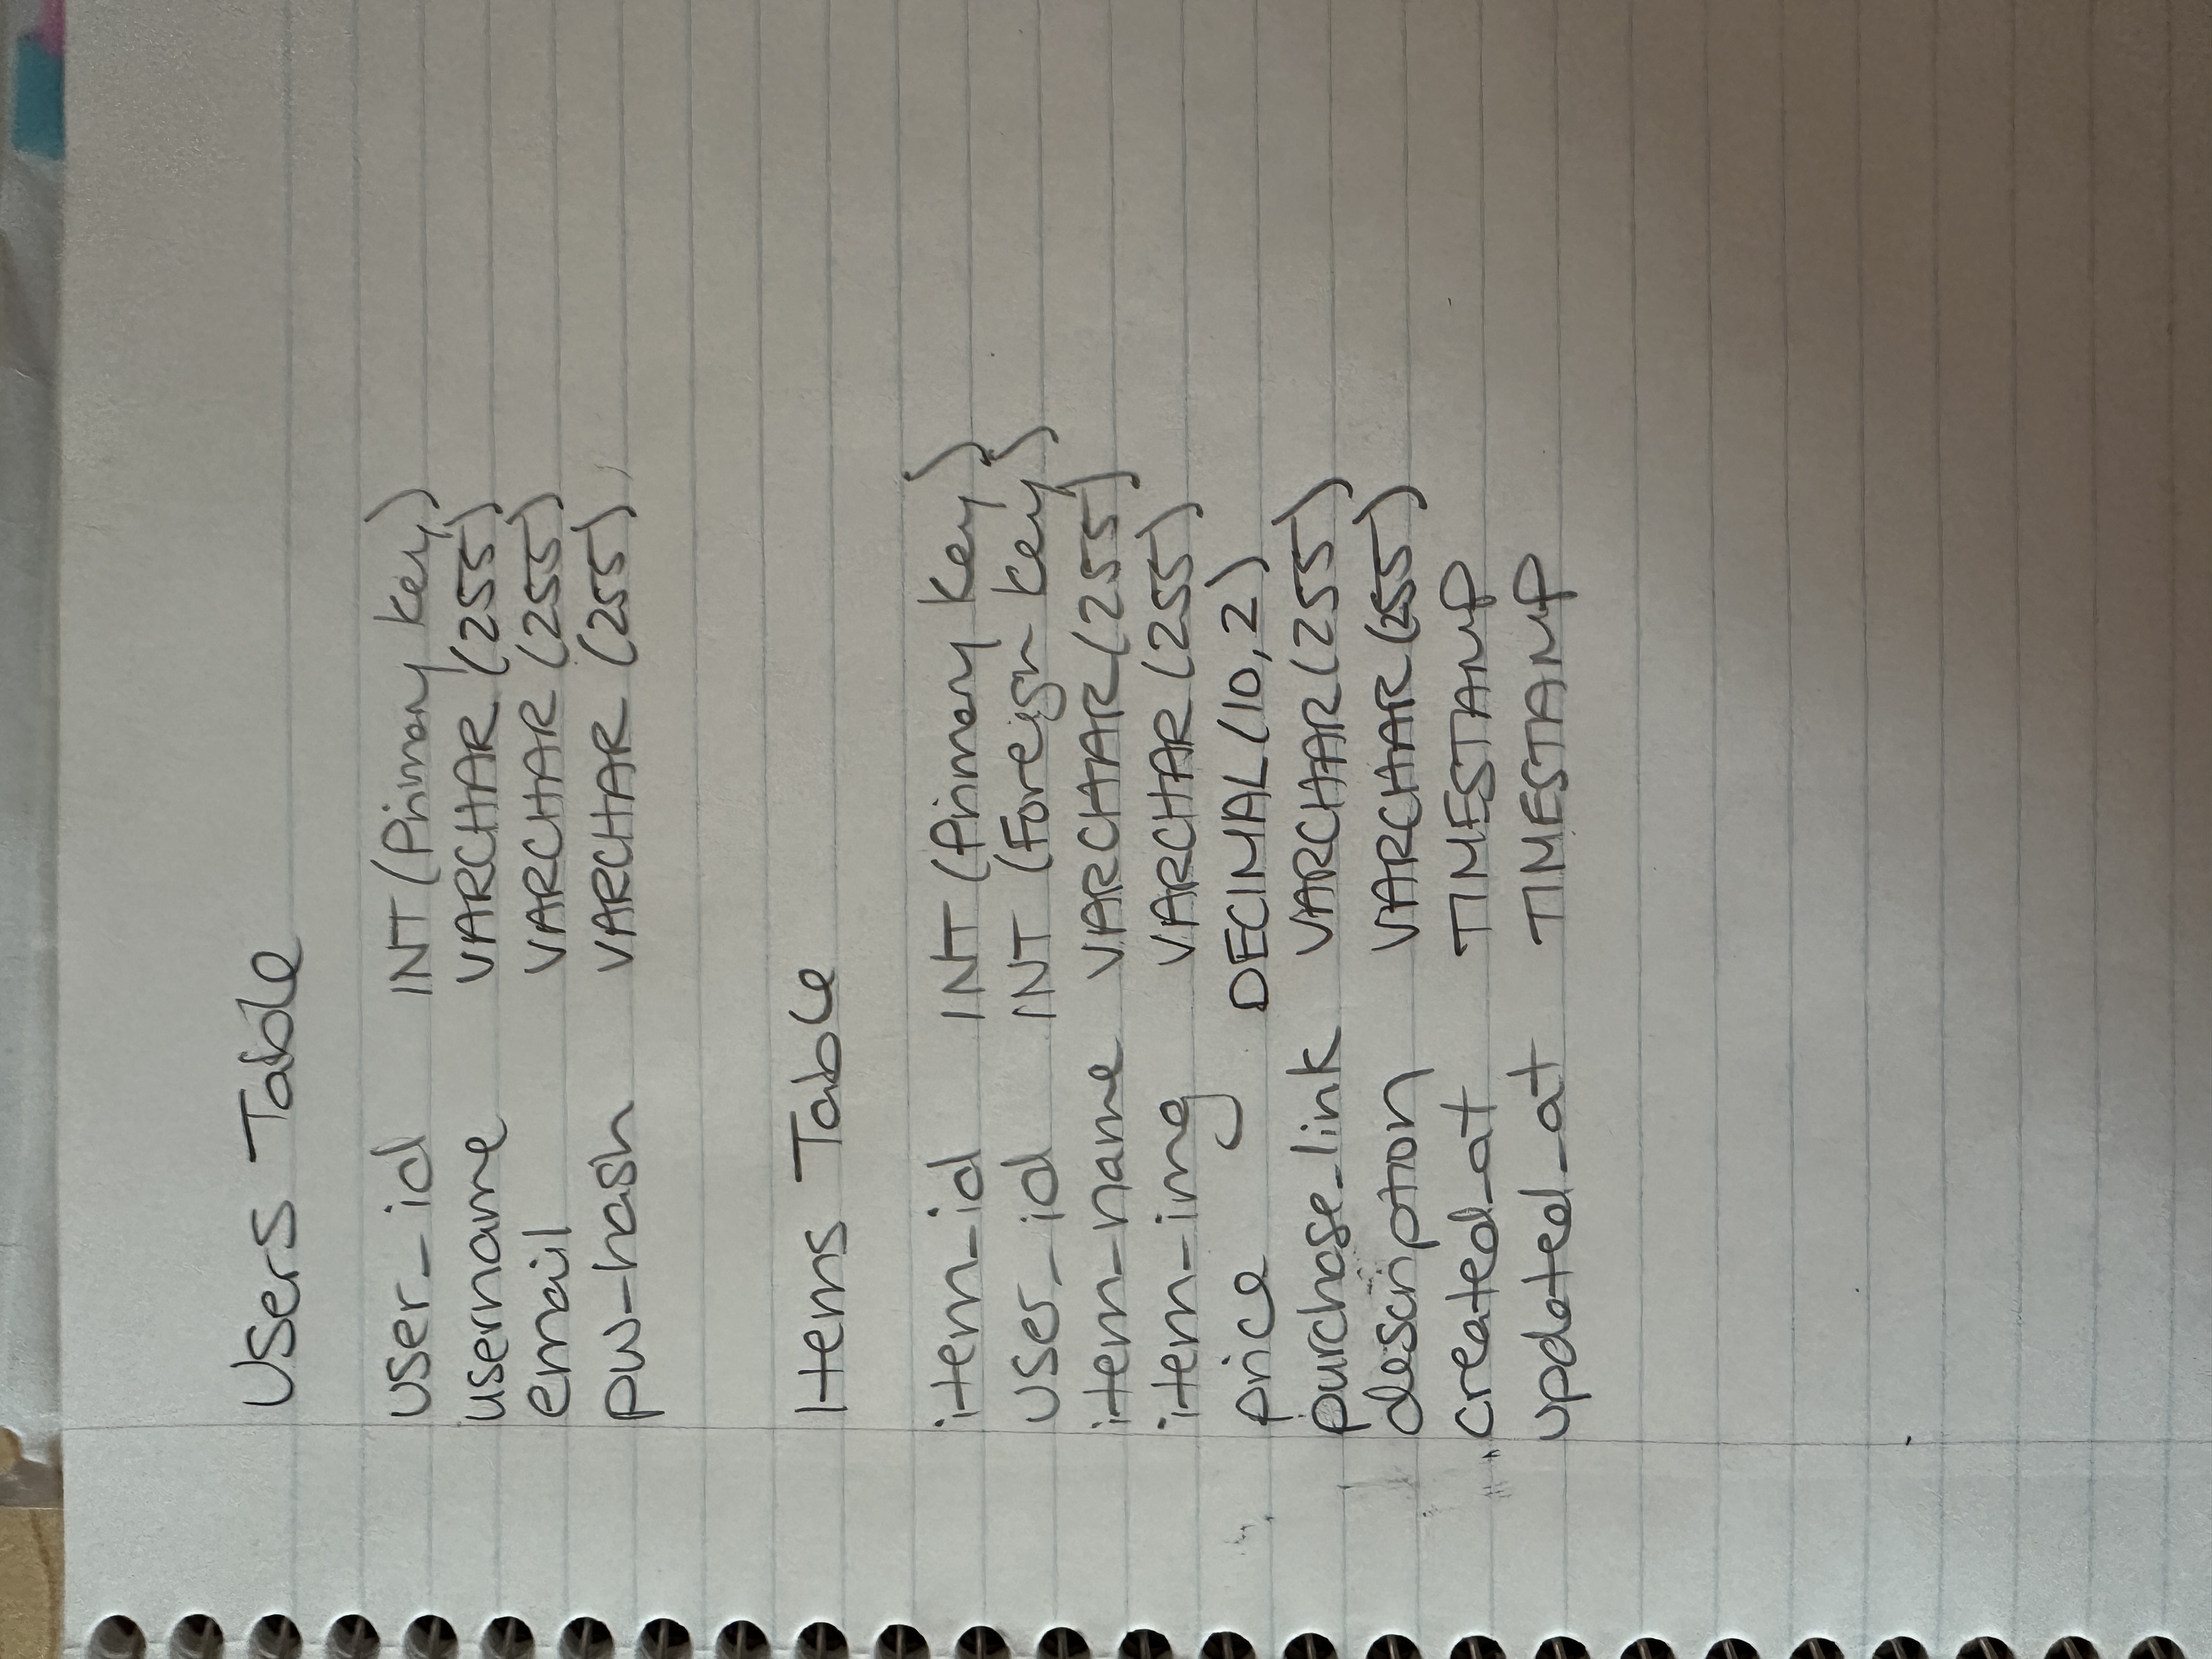 Users Table
user_id INT (Primary Key)
username VARCHAR (255)
email VARCHAR (255)
pw_hash VARCHAR (255)
Items Table
item_id INT (Primary Key)
user_id INT (Foreign Key)
item_name VARCHAR (255)
item_img VARCHAR (255)
price DECIMAL (10,2)
purchase_link VARCHAR (255)
description VARCHAR (255)
created_at TIMESTAMP
updated_at TIMESTAMP